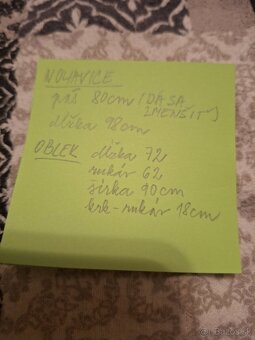 NOHAVICE
pás 80cm (DÁ SA
ZMENŠIŤ)
dĺžka 98cm
OBLEK dĺžka 72
rukáv 62
šírka 90cm
krk-rukáv 18cm